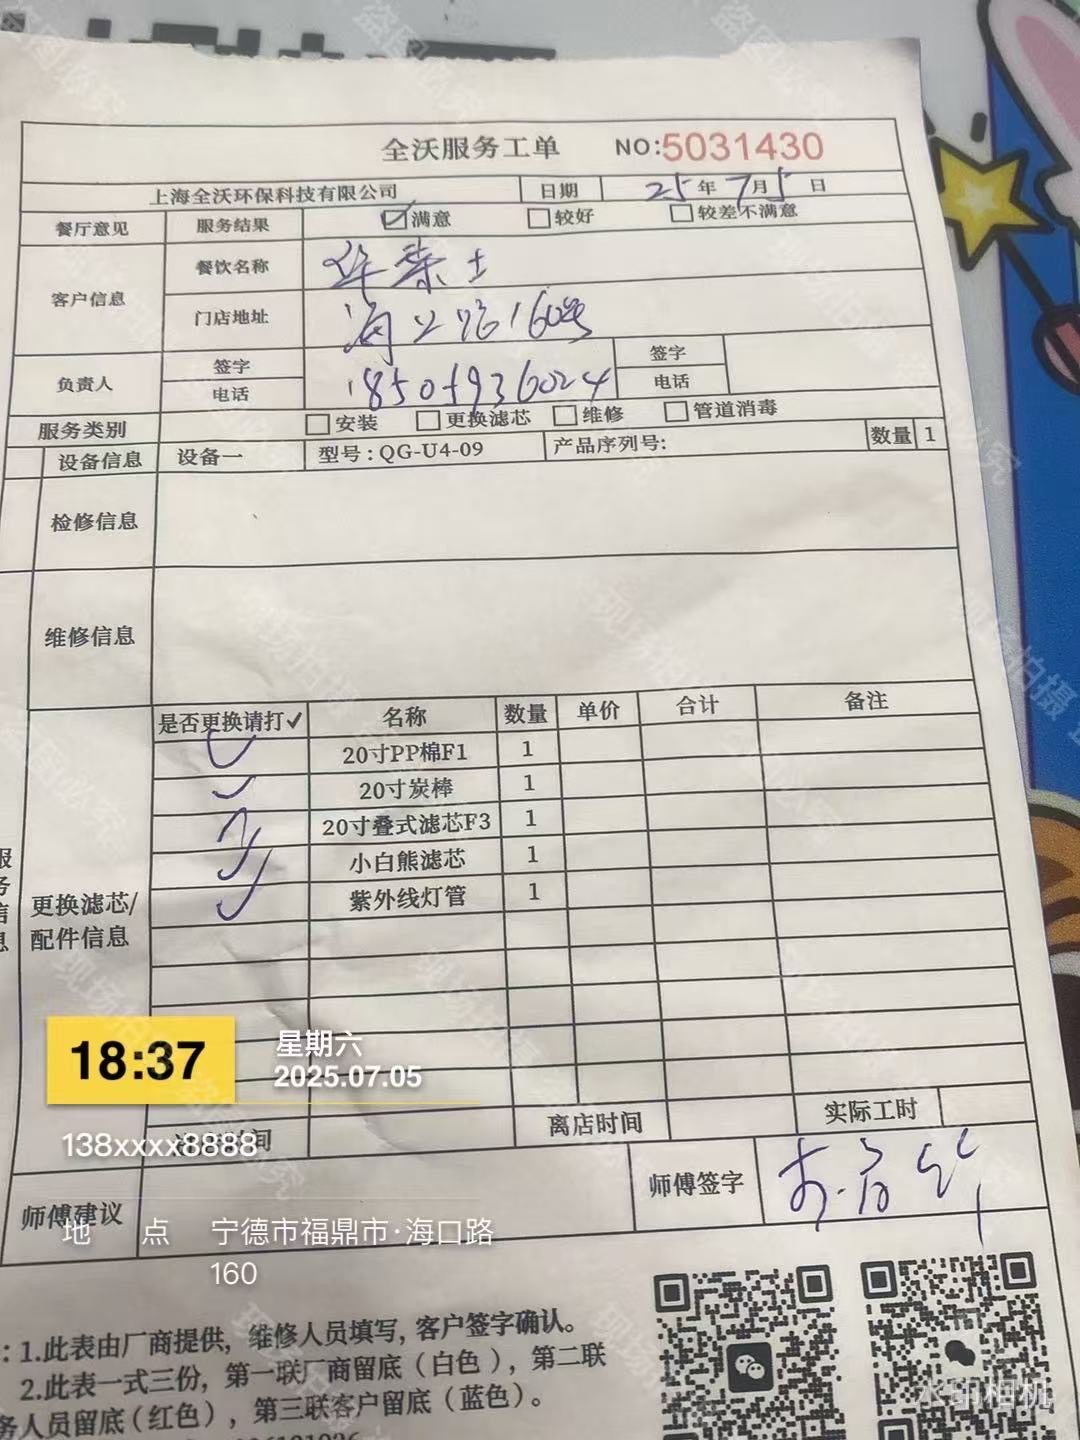 全沃服务工单 NO:5031430
上海全沃环保科技有限公司 日期 25年7月5日
餐厅意见 服务结果 ☑满意 □较好 □较差不满意
客户信息 餐饮名称 华莱士
门店地址 海口路160号
负责人 签字 签字
电话 18501936024 电话
服务类别 □安装 □更换滤芯 □维修 □管道消毒
设备信息 设备一 型号:QG-U4-09 产品序列号: 数量 1
检修信息
维修信息
是否更换请打✓ 名称 数量 单价 合计 备注
✓ 20寸PP棉F1 1
✓ 20寸炭棒 1
✓ 20寸叠式滤芯F3 1
✓ 小白熊滤芯 1
✓ 紫外线灯管 1
更换滤芯/
配件信息
服务信息
18:37 星期六
2025.07.05
离店时间 实际工时
138xxxx8888
师傅建议 师傅签字
地 点 宁德市福鼎市·海口路
160
:1.此表由厂商提供，维修人员填写，客户签字确认。
2.此表一式三份，第一联厂商留底（白色），第二联
务人员留底（红色），第三联客户留底（蓝色）。
水印相机